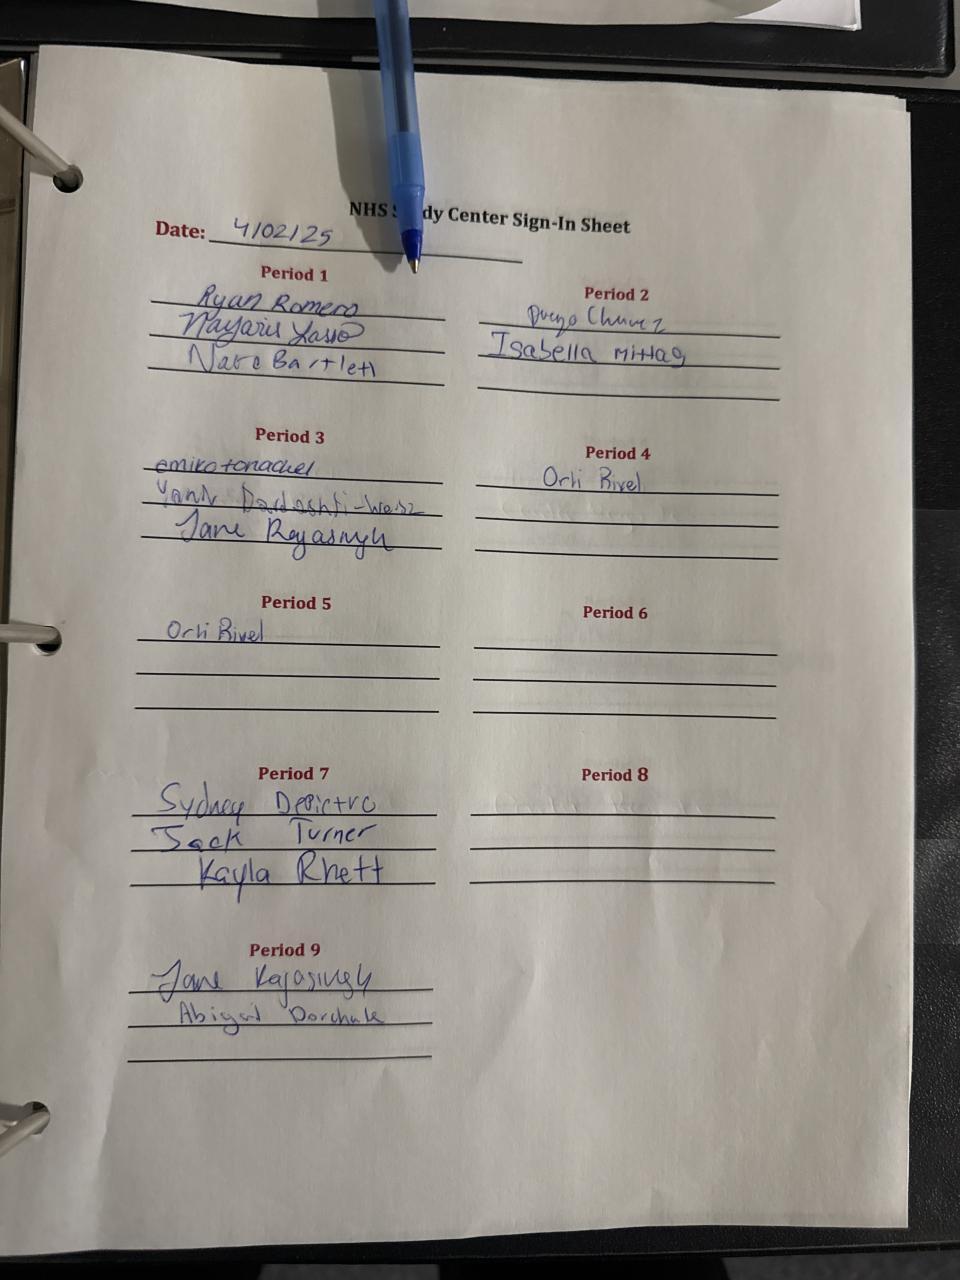 NHS Study Center Sign-In Sheet
Date: 4/02/25
Period 1
Ryan Romero
Nayaris Lasso
Nate Bartlett
Period 2
Diego Chavez
Isabella Mittag
Period 3
emiko tonachel
Dardashti-Weisz
Jane Rajasingh
Period 4
Orli Rivel
Period 5
Orli Rivel
Period 6
Period 7
Sydney
Jack Turner
Kayla Rhett
Period 8
Period 9
Jane Rajasingh
Abigail